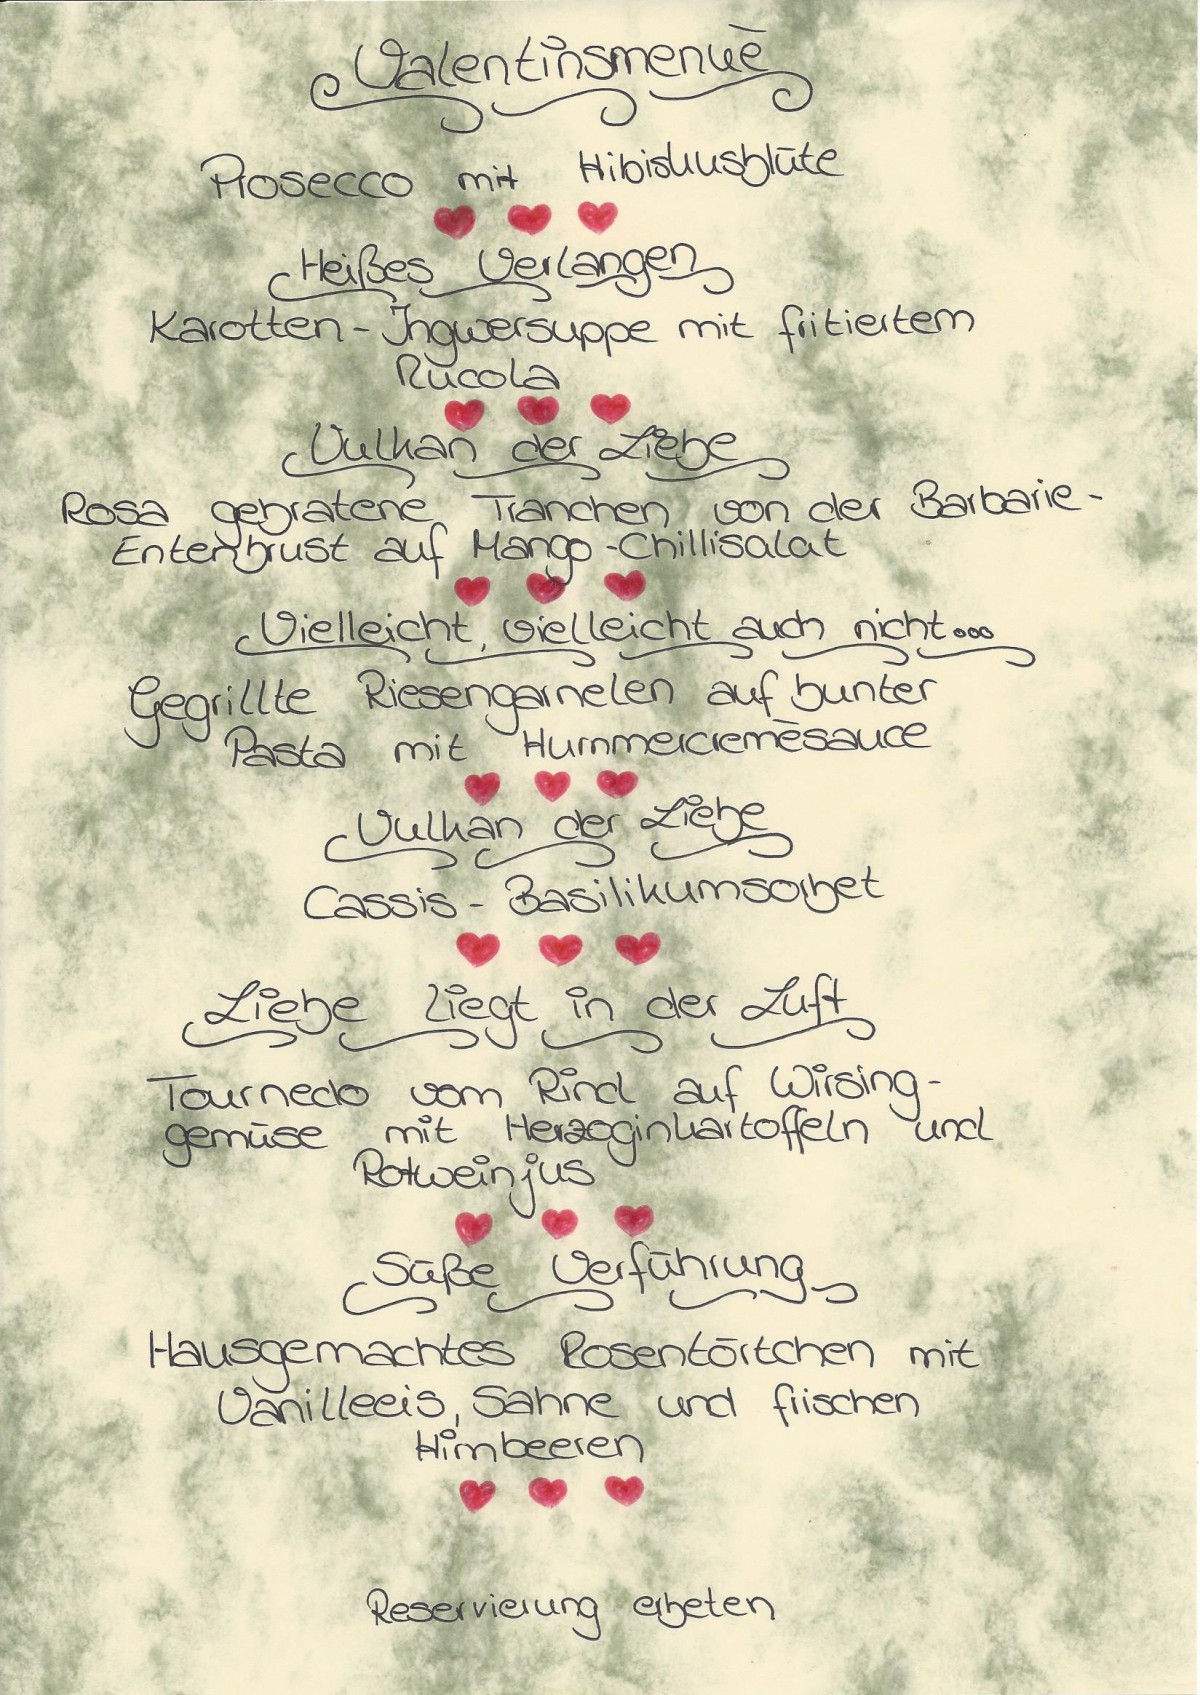 Valentinsmenuè
Prosecco mit Hibiskusblüte
Heißes Verlangen
Karotten-Ingwersuppe mit fritiertem
Rucola
Vulkan der Liebe
Rosa gebratene Tranchen von der Barbarie-
Entenbrust auf Mango-Chillisalat
Vielleicht, vielleicht auch nicht...
Gegrillte Riesengarnelen auf bunter
Pasta mit Hummercremèsauce
Vulkan der Liebe
Cassis-Basilikumsorbet
Liebe liegt in der Luft
Tournedo vom Rind auf Wirsing-
gemüse mit Herzoginkartoffeln und
Rotweinjus
Süße Verführung
Hausgemachtes Rosentörtchen mit
Vanilleeis, Sahne und frischen
Himbeeren
Reservierung erbeten